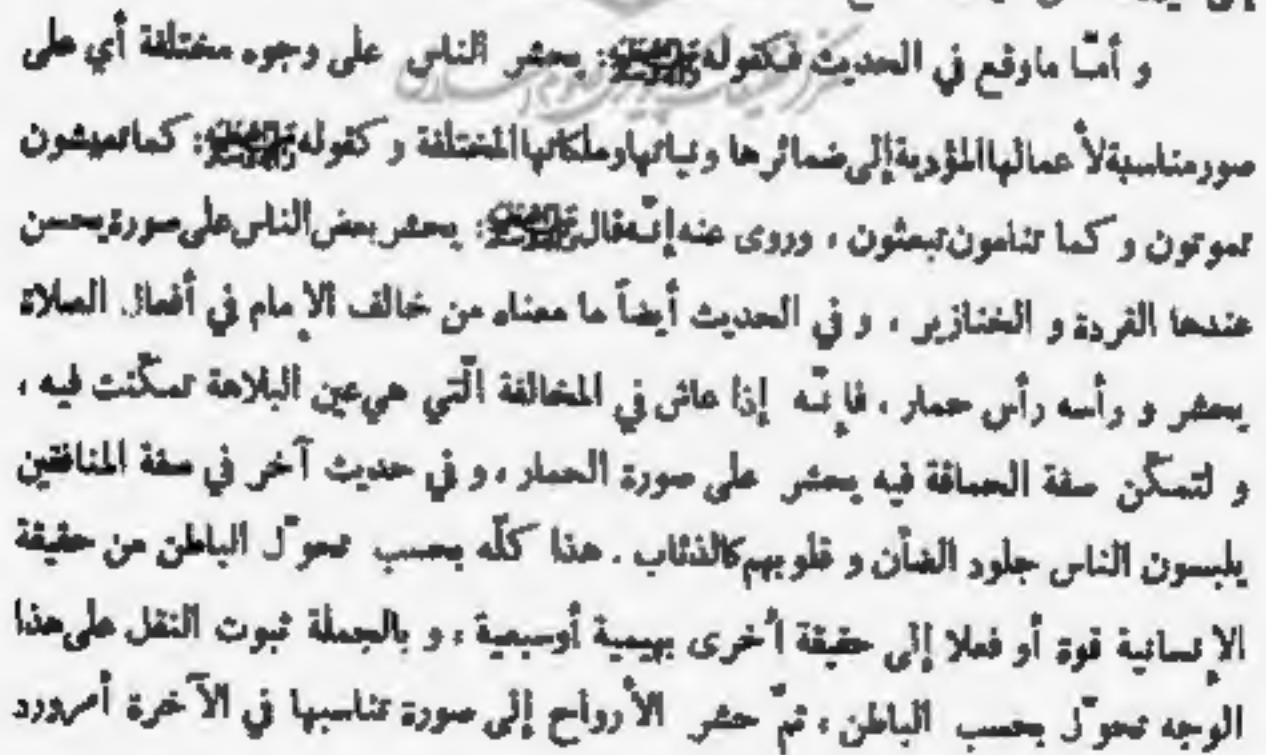 و أمّا ماوقع في الحديث فكقوله ﷺ: يحشر الناس على وجوه مختلفة أي على
صورمناسبةلأ عمالهاالمؤدية إلى ضمائرها ونياتهاوملكاتهاالمختلفة و كقوله ﷺ: كماتعيشون
تموتون و كما تنامون تبعثون ، وروى عنه إنّه قال ﷺ: يحشر بعض الناس على صورة يحسن
عندها القردة و الخنازير ، و في الحديث أيضاً ما معناه من خالف الإمام في أفعال الصلاة
يحشر و رأسه رأس حمار ، فإنّه إذا عاش في المخالفة الّتي هي عين البلاهة تمكّنت فيه ،
و لتمكّن صفة الحماقة فيه يحشر على صورة الحمار ، و في حديث آخر في صفة المنافقين
يلبسون الناس جلود الضأن و قلوبهم كالذئاب . هذا كلّه بحسب تحوّل الباطن من حقيقة
الإنسانية قوة أو فعلا إلى حقيقة أخرى بهيمية أوسبعية ، و بالجملة ثبوت النقل على هذا
الوجه تحوّل بحسب الباطن ، ثمّ حشر الأرواح إلى صورة تناسبها في الآخرة أمرورد